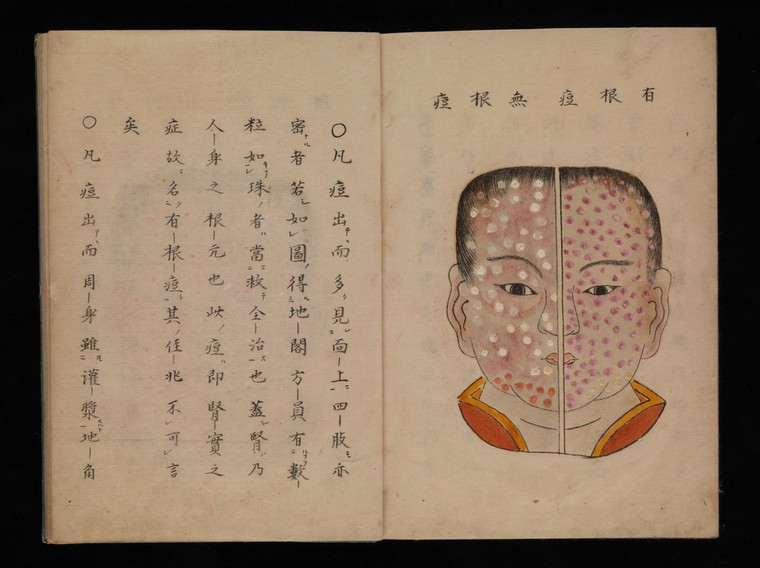 有根痘 無根痘
〇凡痘出而多見面上四肢亦
密者若如圖得地閣方員有數
粒如珠者當救全治也蓋腎乃
人身之根元也此痘即腎實之
症故名有根痘其佳兆不可言
矣
〇凡痘出而周身雖灌漿地角